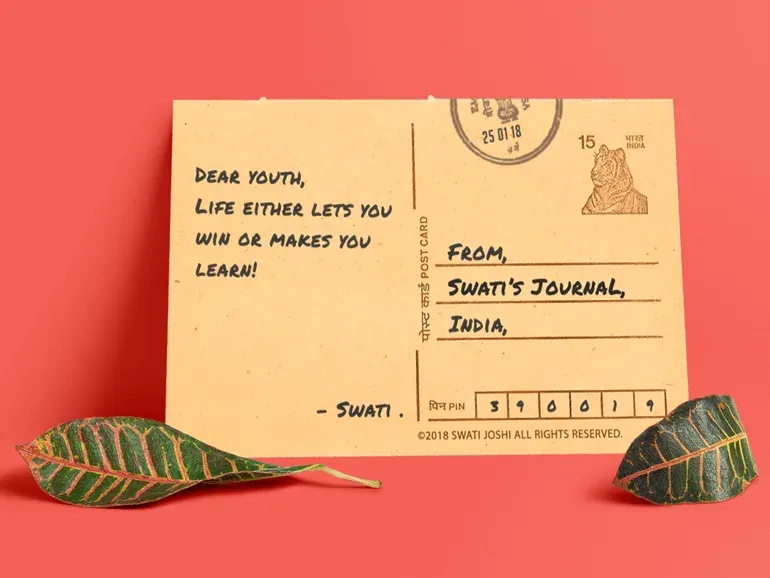 DEAR YOUTH,
LIFE EITHER LETS YOU
WIN OR MAKES YOU
LEARN!
- SWATI .
पोस्ट कार्ड POST CARD
25 01 18
15 भारत
INDIA
FROM,
SWATI'S JOURNAL,
INDIA,
पिन PIN 3 9 0 0 1 9
©2018 SWATI JOSHI ALL RIGHTS RESERVED.